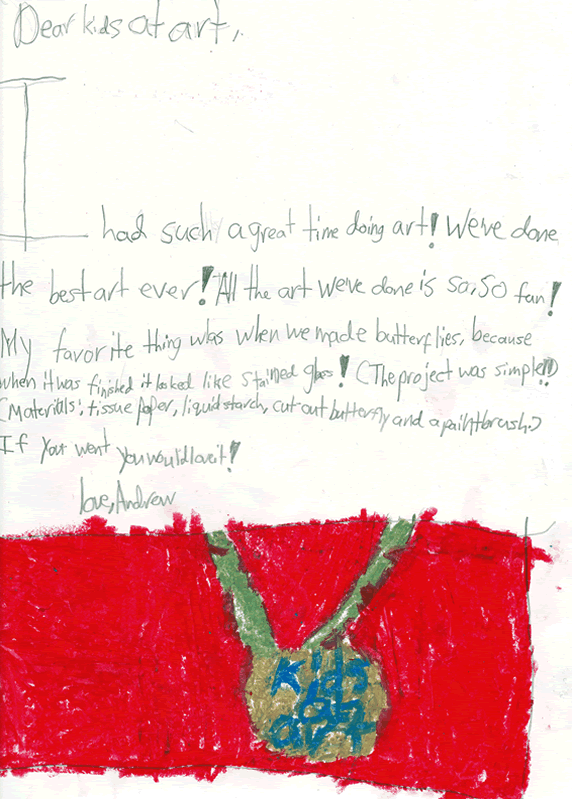 Dear kids at art,
I had such a great time doing art! We've done
the best art ever! All the art we've done is so, so fun!
My favorite thing was when we made butterflies, because
when it was finished it looked like stained glass! (The project was simple!!)
(Materials: tissue paper, liquid starch, cut out butterfly and a paintbrush.)
If you went you would love it!
love, Andrew
kids
at
art